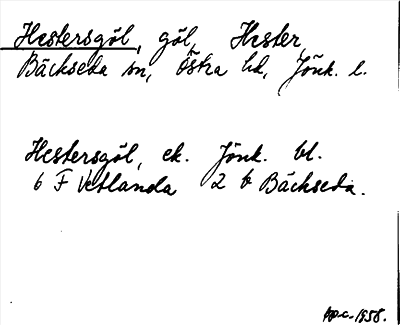 Hestersgöl, göl, Hester,
Bäckseda sn, Östra hd, Jönk. l.
Hestersgöl, ek. Jönk. bl.
6 F Vetlanda 2 b Bäckseda.
1958.